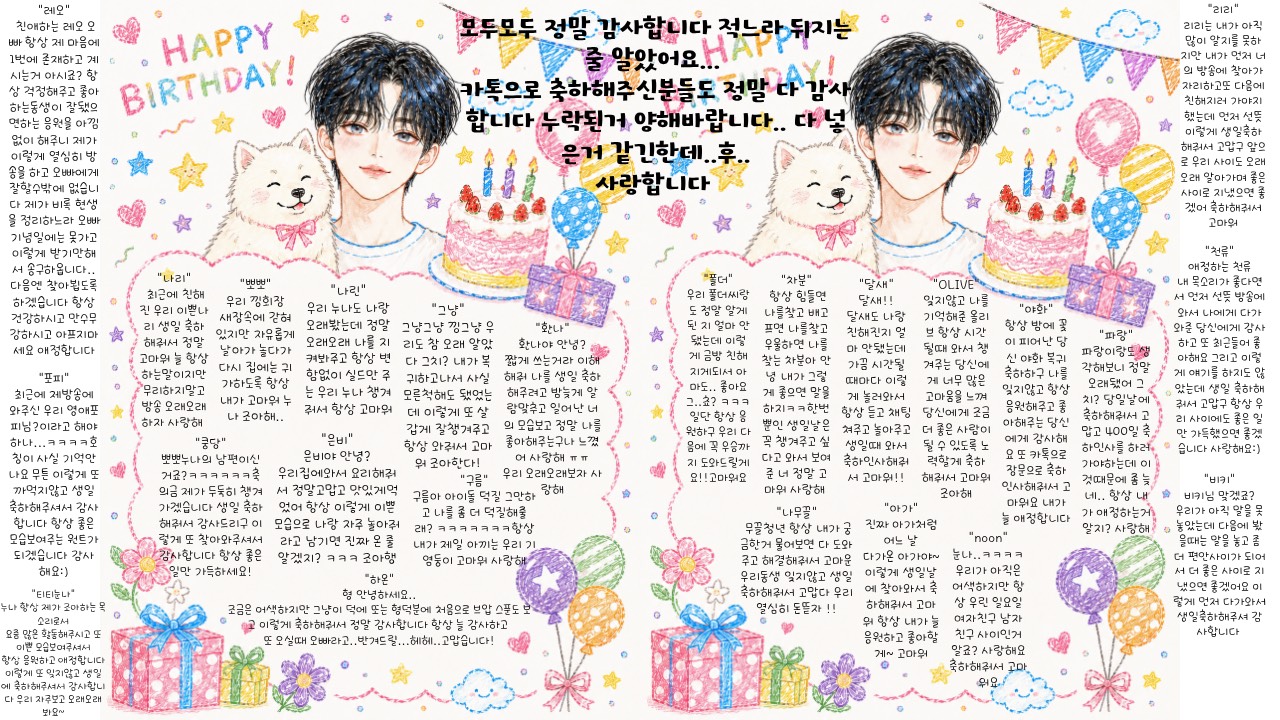 "레오"
친애하는 레오 오
빠 항상 제 마음에
1번에 존재하고 계
시는거 아시죠? 항
상 걱정해주고 좋아
하는동생이 잘됐으
면하는 응원을 아낌
없이 해주니 제가
이렇게 열심히 방
송을 하고 오빠에게
잘할수밖에 없습니
다 제가 비록 현생
을 정리하느라 오빠
기념일에는 못가고
이렇게 받기만해
서 송구하옵니다..
다음엔 찾아뵙도록
하겠습니다 항상
건강하시고 만수무
강하시고 아프지마
세요 애정합니다
"포피"
최근에 제방송에
와주신 우리 영애포
피님?이라고 해야
하나...ㅋㅋㅋㅋ호
칭이 사실 기억안
나요 무튼 이렇게 또
까먹지않고 생일
축하해주셔서 감사
합니다 항상 좋은
모습보여주는 원트가
되겠습니다 감사
해요:)
"티티누나"
누나 항상 제가 조아하는 목
소리로서
요즘 많은 활동해주시고 또
이쁜 모습보여주셔서
항상 응원하고 애정합니다
이렇게 또 잊지않고 생일
에 축하해주셔서 감사합니
다 우리 자주보고 오래오래
봐요~
HAPPY
BIRTHDAY!
모두모두 정말 감사합니다 적느라 뒤지는
줄 알았어요...
카톡으로 축하해주신분들도 정말 다 감사
합니다 누락된거 양해바랍니다.. 다 넣
은거 같긴한데..후..
사랑합니다
HAPPY
BIRTHDAY!
"나리"
최근에 친해
진 우리 이쁜나
리 생일 축하
해주셔서 정말
고마워 늘 항상
하는말이지만
무리하지말고
방송 오래오래
하자 사랑해
"뽀뽀"
우리 낑회장
새장속에 갇혀
있지만 자유롭게
날아가 놀다가
다시 집에는 귀
가하도록 항상
내가 고마워 누
나 조아해..
"나린"
우리 누나도 나랑
오래봤는데 정말
오래오래 나를 지
켜봐주고 항상 변
함없이 실드만 주
는 우리 누나 챙겨
줘서 항상 고마워
"그냥"
그냥그냥 낑그냥 우
리도 참 오래 알았
다 그치? 내가 복
귀하고나서 사실
모른척해도 됐었는
데 이렇게 또 살
갑게 잘챙겨주고
항상 와줘서 고마
워 조아한다!
"환나"
환나야 안녕?
짧게 쓰는거라 이해
해줘 나를 생일 축하
해주려고 밤늦게 알
람맞추고 일어난 너
의 모습보고 정말 나를
좋아해주는구나 느꼈
어 사랑해 ㅠㅠ
우리 오래오래보자 사
랑해
"쿵당"
뽀뽀누나의 남편이신
거죠?ㅋㅋㅋㅋㅋㅋ축
의금 제가 두둑히 챙겨
가겠습니다 생일 축하
해주셔서 감사드리구 이
렇게 또 찾아와주셔서
감사합니다 항상 좋은
일만 가득하세요!
"은비"
은비야 안녕?
우리집에와서 요리해줘
서 정말고맙고 맛있게먹
었어 항상 이렇게 이쁜
모습으로 나랑 자주 놀아줘
라고 남기면 진짜 은 줄
알겠지? ㅋㅋㅋ 조아행
"구름"
구름아 아이돌 덕질 그만하
고 나를 좀 더 덕질해줄
래? ㅋㅋㅋㅋㅋㅋㅋ항상
내가 제일 아끼는 우리 기
염둥이 고마워 사랑해
"하온"
형 안녕하세요..
조금은 어색하지만 그냥이 덕에 또는 형덕분에 처음으로 보압 스푼도 보
고 이렇게 축하해주셔서 정말 감사합니다 항상 늘 감사하고
또 오실때 오빠라고..반겨드릴...헤헤..고맙습니다!
"풀더"
우리 풀더씨랑
도 정말 알게
된 지 얼마 안
됐는데 이렇
게 금방 친해
지게되서 아
마도.. 좋아요
그..죠? ㅋㅋㅋ
일단 항상 응
원하구 우리 다
음에 꼭 우승까
지 도와드릴게
요!!고마워요
"차분"
항상 힘들면
나를찾고 배고
프면 나를찾고
우울하면 나를
찾는 차분아 안
녕 내가 그렇
게 좋으면 말을
하지ㅋㅋ한번
뿐인 생일날은
꼭 챙겨주고 싶
다고 와서 보여
준 너 정말 고
마워 사랑해
"달새"
달새!!
달새도 나랑
친해진지 얼
마 안됐는데
가끔 시간될
때마다 이렇
게 놀러와서
항상 듣고 채팅
쳐주고 놀아주고
생일때 와서
축하인사해줘
서 고마워!!
"OLIVE"
잊지않고 나를
기억해준 올리
브 항상 시간
될때 와서 챙
겨주는 당신에
게 너무 많은
고마움을 느껴
당신에게 조금
더 좋은 사람이
될 수 있도록 노
력할게 축하
해줘서 고마워
조아해
"야화"
항상 밤에 꽃
이 피어난 당
신 야화 복귀
축하하구 나를
잊지않고 항상
응원해주고 좋
아해주는 당신
에게 감사해
요 또 카톡으로
장문으로 축하
인사해주셔서 고
마워요 내가
늘 애정합니다
"파랑"
파랑이랑도 생
각해보니 정말
오래됐어 그
치? 당일날에
축하해줘서 고
맙고 400일 축
하인사를 하러
가야하는데 이
것때문에 좀 늦
네.. 항상 내
가 애정하는거
알지? 사랑해
"나무꾼"
무꾼청년 항상 내가 궁
금한거 물어보면 다 도와
주고 해결해줘서 고마운
우리동생 잊지않고 생일
축하해줘서 고맙다 우리
열심히 돈뜯자 !!
"아가"
진짜 아가처럼
어느 날
다가온 아가야~
이렇게 생일날
에 찾아와서 축
하해줘서 고마
워 항상 내가 늘
응원하고 좋아할
게~ 고마워
"noon"
눈나..ㅋㅋㅋㅋ
우리가 아직은
어색하지만 항
상 우린 일요일
여자친구 남자
친구 사이인거
알죠? 사랑해요
축하해줘서 고마
워요
"리리"
리리는 내가 아직
많이 알지를 못하
지만 내가 먼저 너
의 방송에 찾아가
자리하고또 다음에
친해지러 가야지
했는데 먼저 선뜻
이렇게 생일축하
해줘서 고맙구 앞으
로 우리 사이도 오래
오래 알아가며 좋은
사이로 지냈으면 좋
겠어 축하해줘서
고마워
"천류"
애정하는 천류
내 목소리가 좋다면
서 먼저 선뜻 방송에
와서 나에게 다가
와준 당신에게 감사
하고 또 최근들어 좋
아해요 그리고 이렇
게 얘기를 하지도 않
았는데 생일 축하해
줘서 고맙구 항상 우
리 사이에도 좋은 일
만 가득했으면 좋겠
습니다 사랑해요:)
"비키"
비키님 맞겠죠?
우리가 아직 말을 못
놓았는데 다음에 봤
을때는 말을 놓고 좀
더 편안사이가 되어
서 더 좋은 사이로 지
냈으면 좋겠어요 이
렇게 먼저 다가와서
생일축하해주셔 감
사합니다